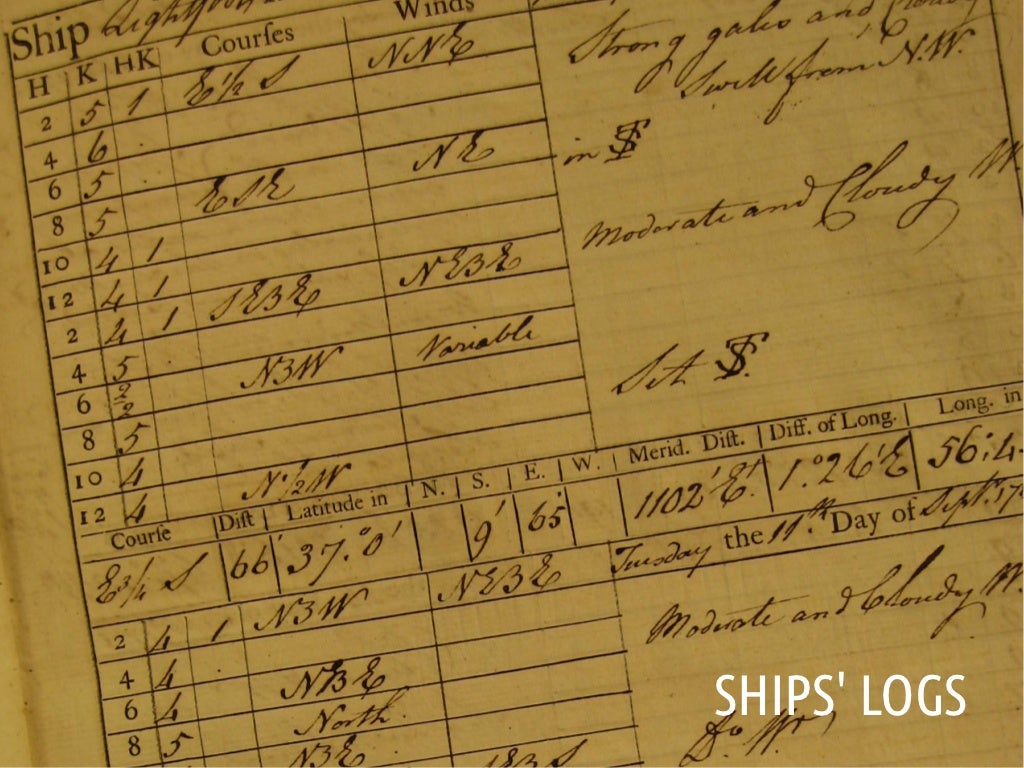 Ship
Winds
H K HK Courſes
2 5 1 E½ S NNE Strong gales and Cloudy
4 6 . Swell from N.W.
6 5 . NE in
8 5 ESE
10 4 1 Moderate and Cloudy W.
12 4 1 NEBE
2 4 1 SEBE
4 5 . Variable
6 2/2 NBW Set
8 5
10 4
12 4 N½W
Courſe Diſt Latitude in N. S. E. W. Merid. Diſt. Diff. of Long. Long. in
E¾ S 66' 37.°0' 9' 65' 1102'E. 1.°26'E 56:4
Tuesday the 11.th Day of Sept.r 17
2 4 1 NBW NEBE
4 4 Moderate and Cloudy W.
6 4 NBE
8 5 North
NBE EBS Do Wr
SHIPS' LOGS